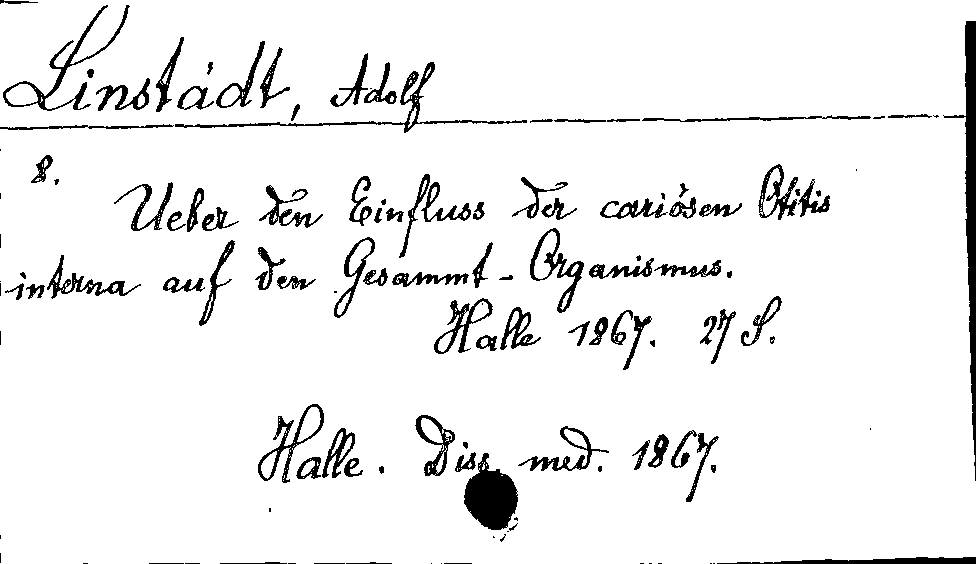 Linstädt, Adolf
8.
Ueber den Einfluss der cariösen Otitis
interna auf den Gesammt-Organismus.
Halle 1867. 27 S.
Halle. Diss. med. 1867.